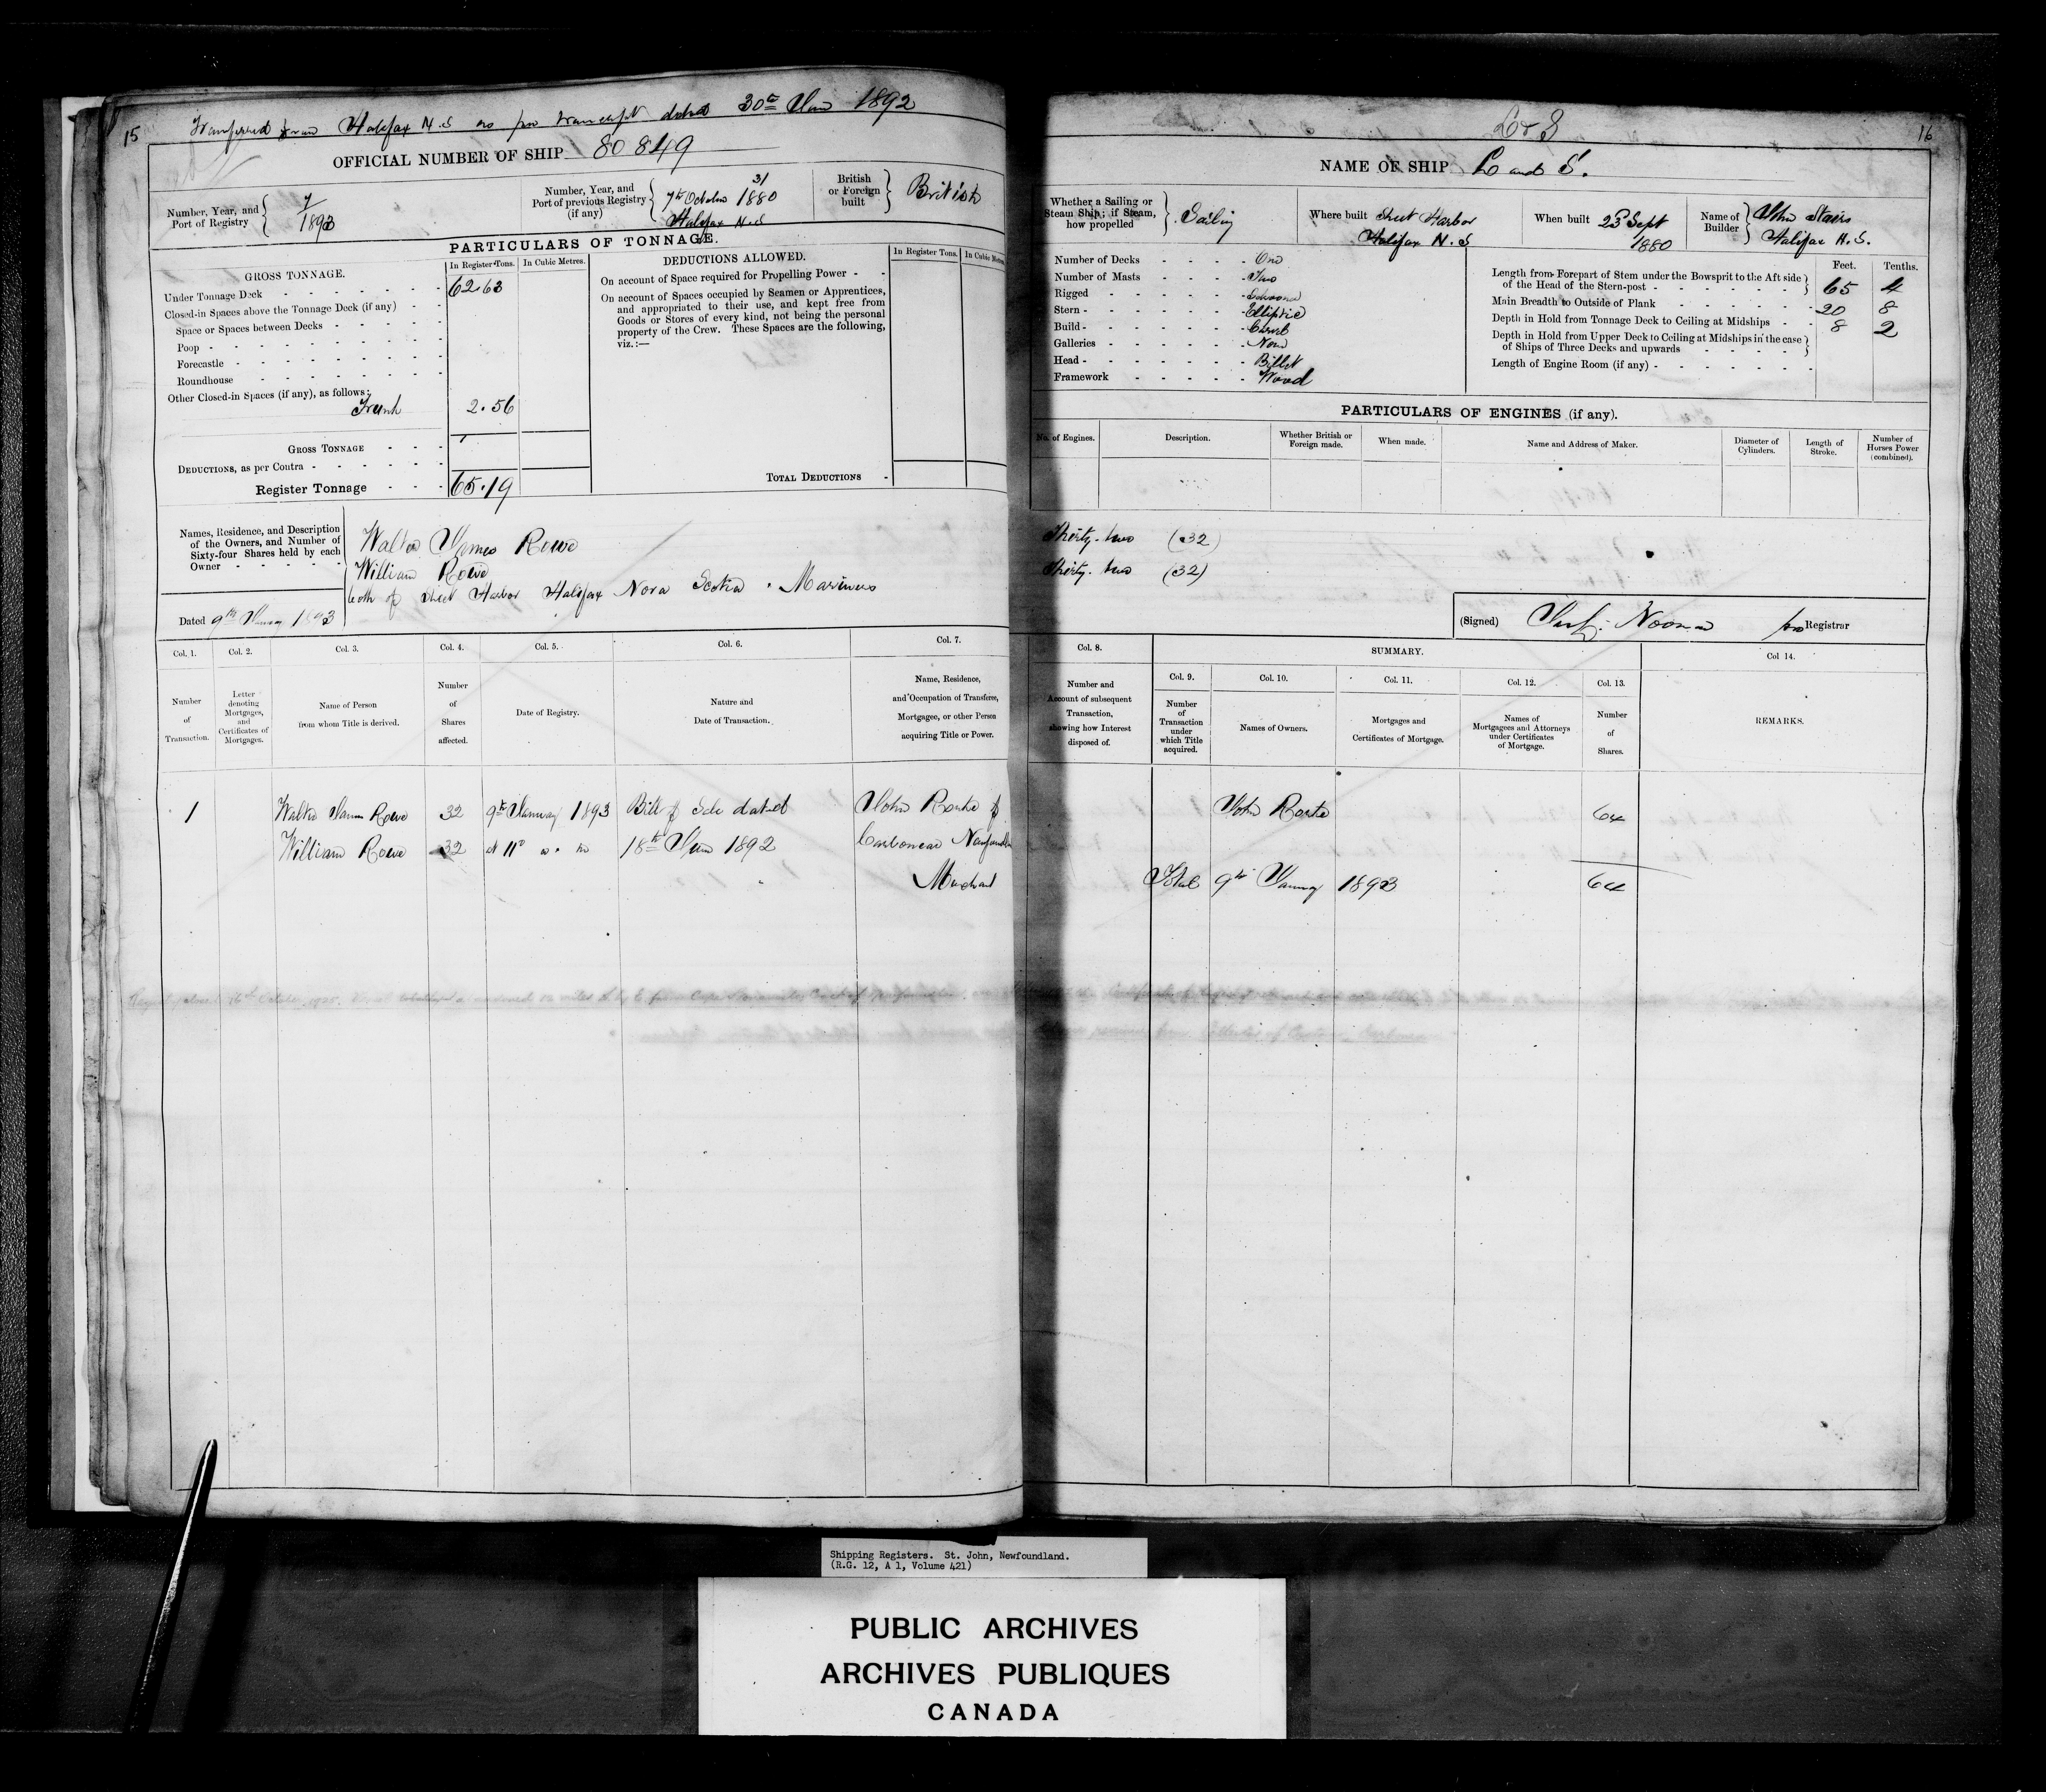 15
Transferred from Halifax N.S as per transcript dated 30th June 1892
OFFICIAL NUMBER OF SHIP 80849
Number, Year, and Port of Registry
7/1893
Number, Year, and Port of previous Registry (if any)
31
7th October 1880
Halifax N.S
British or Foreign built
British
PARTICULARS OF TONNAGE.
GROSS TONNAGE.
In Register Tons.
In Cubic Metres.
Under Tonnage Deck 62.63
Closed-in Spaces above the Tonnage Deck (if any)
Space or Spaces between Decks
Poop
Forecastle
Roundhouse
Other Closed-in Spaces (if any), as follows:
Trunk 2.56
GROSS TONNAGE
DEDUCTIONS, as per Contra
Register Tonnage 65.19
DEDUCTIONS ALLOWED.
In Register Tons.
In Cubic Metres.
On account of Space required for Propelling Power
On account of Spaces occupied by Seamen or Apprentices,
and appropriated to their use, and kept free from
Goods or Stores of every kind, not being the personal
property of the Crew. These Spaces are the following,
viz.:—
TOTAL DEDUCTIONS
Names, Residence, and Description
of the Owners, and Number of
Sixty-four Shares held by each
Owner
Walter James Rowe
William Rowe
both of Sheet Harbor Halifax Nova Scotia. Mariners
Dated 9th January 1893
Col. 1. Col. 2. Col. 3. Col. 4. Col. 5. Col. 6. Col. 7.
Number of Transaction.
Letter denoting Mortgages, and Certificates of Mortgages.
Name of Person from whom Title is derived.
Number of Shares affected.
Date of Registry.
Nature and Date of Transaction.
Name, Residence, and Occupation of Transferee, Mortgagee, or other Person acquiring Title or Power.
1 Walter James Rowe 32 9th January 1893 Bill of Sale dated John Rorke of
William Rowe 32 at 11 a.m 18th June 1892 Carbonear
Merchant
16
L & S
NAME OF SHIP L and S.
Whether a Sailing or Steam Ship; if Steam, how propelled
Sailing
Where built Sheet Harbor
Halifax N.S
When built 23rd Sept
1880
Name of Builder
John Stairs
Halifax N.S.
Number of Decks One
Number of Masts Two
Rigged Schooner
Stern Elliptic
Build Carvel
Galleries None
Head Billet
Framework Wood
Feet. Tenths.
Length from Forepart of Stem under the Bowsprit to the Aft side
of the Head of the Stern-post 65 4
Main Breadth to Outside of Plank 20 8
Depth in Hold from Tonnage Deck to Ceiling at Midships 8 2
Depth in Hold from Upper Deck to Ceiling at Midships in the case
of Ships of Three Decks and upwards
Length of Engine Room (if any)
PARTICULARS OF ENGINES (if any).
No. of Engines.
Description.
Whether British or Foreign made.
When made.
Name and Address of Maker.
Diameter of Cylinders.
Length of Stroke.
Number of Horses Power (combined).
Thirty-two (32)
Thirty-two (32)
(Signed) Noonan pro Registrar
Col. 8.
SUMMARY.
Col. 9. Col. 10. Col. 11. Col. 12. Col. 13.
Col 14.
Number and Account of subsequent Transaction, showing how Interest disposed of.
Number of Transaction under which Title acquired.
Names of Owners.
Mortgages and Certificates of Mortgage.
Names of Mortgagees and Attorneys under Certificates of Mortgage.
Number of Shares.
REMARKS.
John Rorke 64
Total 9th January 1893 64
Shipping Registers. St. John, Newfoundland.
(R.G. 12, A 1, Volume 421)
PUBLIC ARCHIVES
ARCHIVES PUBLIQUES
CANADA